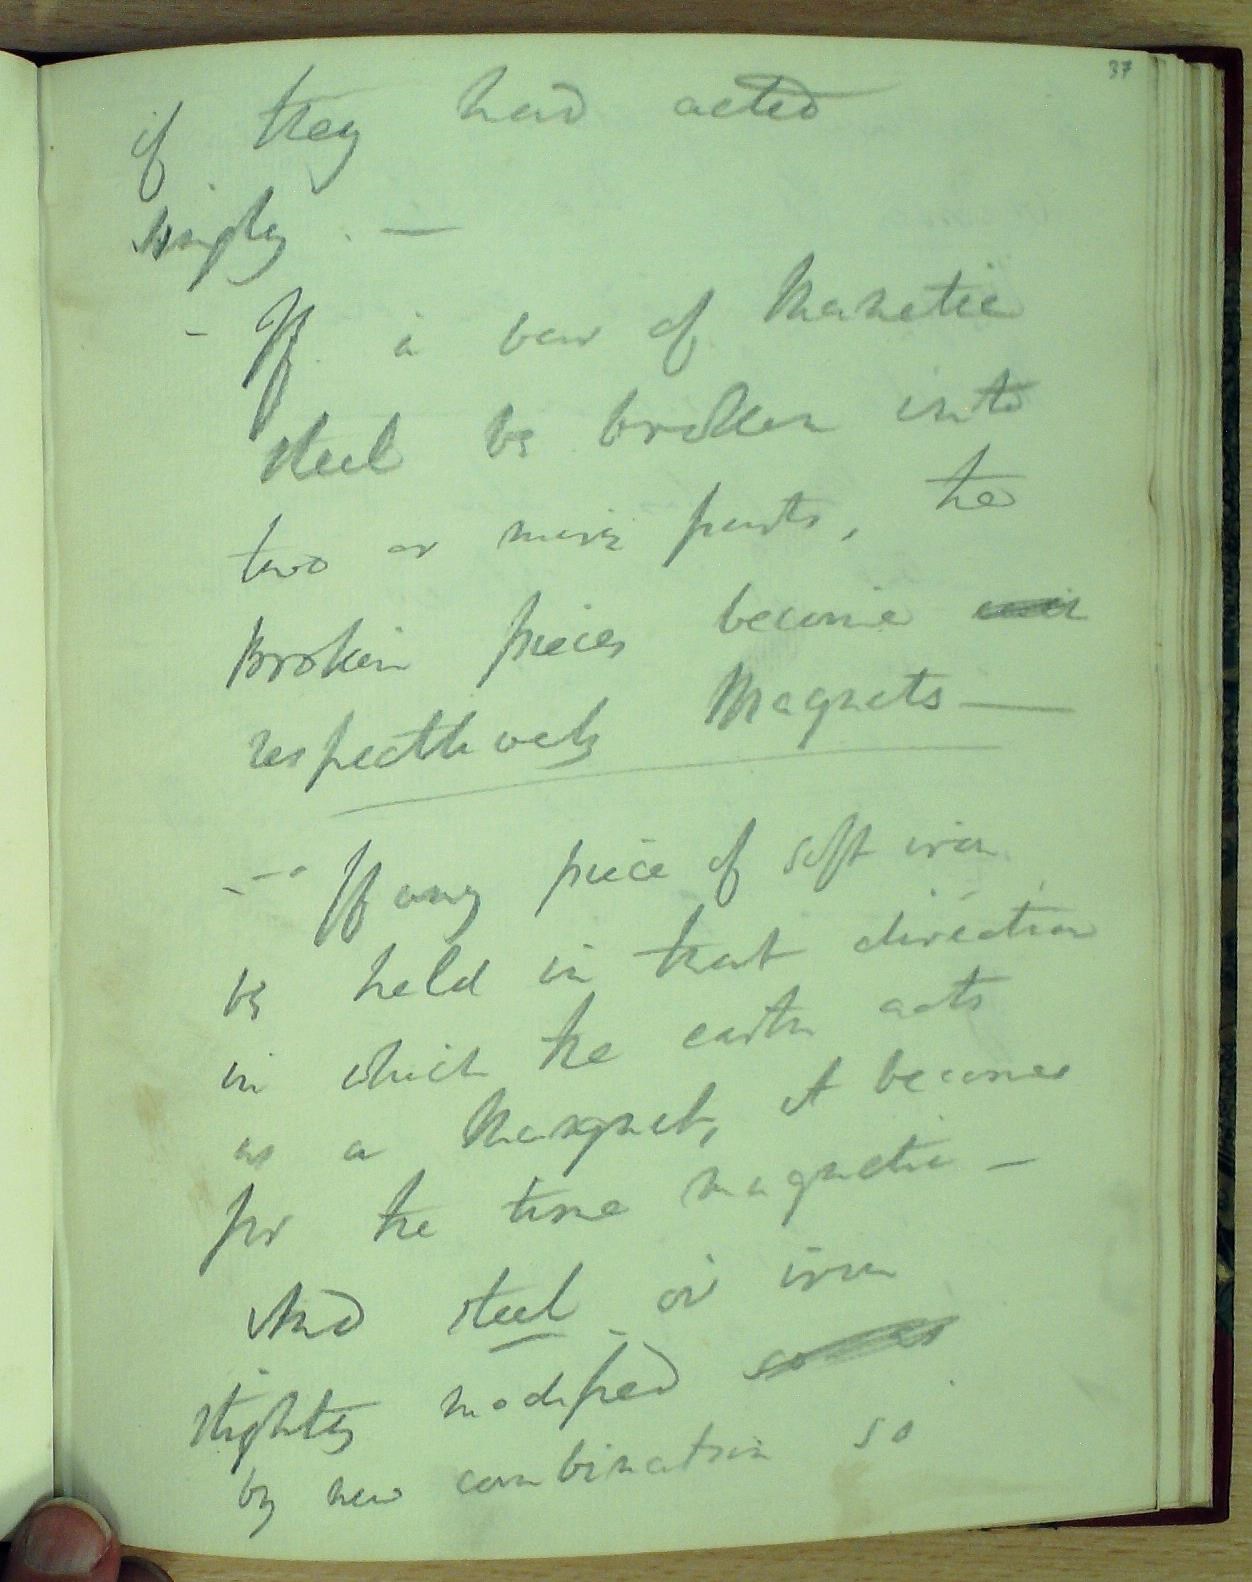 37
if they had acted
simply. —
- If a bar of Manetic
steel be broken into
two or more parts, the
Broken pieces become
respecttively Magnets —
-- If any piece of soft iron
be held in that direction
in which the earth acts
as a Margnet, it becomes
for the time magnetic —
And steel or iron
slightly modified so as
by new combination so